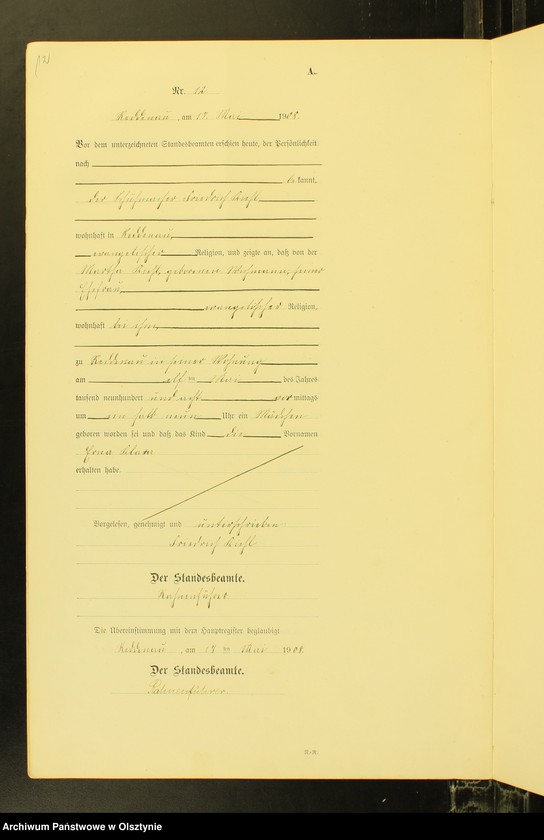 A.
Nr. 12
Reddenau, am 17. Mai 1908.
Vor dem unterzeichneten Standesbeamten erschien heute, der Persönlichkeit
nach
bekannt,
der Friedrich
wohnhaft in Reddenau
evangelischer Religion, und zeigte an, daß von der
Martha geborenen seiner
Ehefrau
evangelischer Religion,
wohnhaft bei ihm
zu Reddenau in seiner Wohnung
am elften Mai des Jahres
tausend neunhundert und acht vormittags
um ein halb neun Uhr ein Mädchen
geboren worden sei und daß das Kind die Vornamen
Erna
erhalten habe.
Vorgelesen, genehmigt und unterschrieben
Friedrich
Der Standesbeamte.
Die Übereinstimmung mit dem Hauptregister beglaubigt
Reddenau, am 17ten Mai 1908.
Der Standesbeamte.
Archiwum Państwowe w Olsztynie